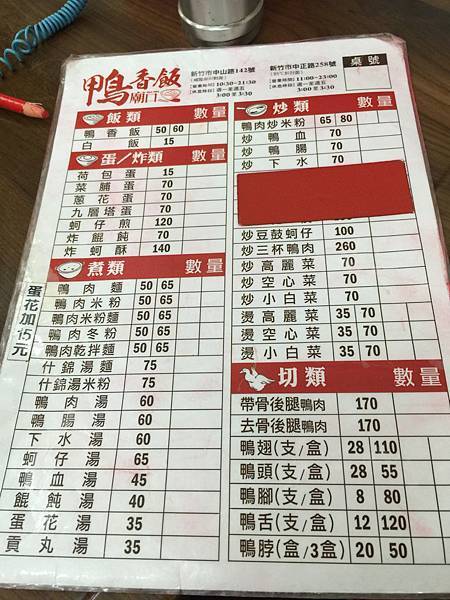 鴨香飯
廟口
新竹市中山路142號
10:30~21:30
3:00 至 3:30
新竹市中正路258號
11:00~23:00
3:00 至 3:30
桌號
飯類 數量
鴨香飯 50 60
白飯 15
蛋/炸類 數量
荷包蛋 15
菜脯蛋 70
蔥花蛋 70
九層塔蛋 70
蚵仔煎 120
炸餛飩 70
炸蚵酥 140
煮類 數量
蛋花加15元
鴨肉麵 50 65
鴨肉米粉 50 65
鴨肉米粉麵 50 65
鴨肉冬粉 50 65
鴨肉乾拌麵 50 65
什錦湯麵 75
什錦湯米粉 75
鴨肉湯 60
鴨腸湯 60
下水湯 60
蚵仔湯 65
鴨血湯 45
餛飩湯 40
蛋花湯 35
貢丸湯 35
炒類 數量
鴨肉炒米粉 65 80
炒鴨血 70
炒鴨腸 70
炒下水 70
炒豆鼓蚵仔 100
炒三杯鴨肉 260
炒高麗菜 70
炒空心菜 70
炒小白菜 70
燙高麗菜 35 70
燙空心菜 35 70
燙小白菜 35 70
切類 數量
帶骨後腿鴨肉 170
去骨後腿鴨肉 170
鴨翅(支/盒) 28 110
鴨頭(支/盒) 28 55
鴨腳(支/盒) 8 80
鴨舌(支/盒) 12 120
鴨脖(盒/3盒) 20 50